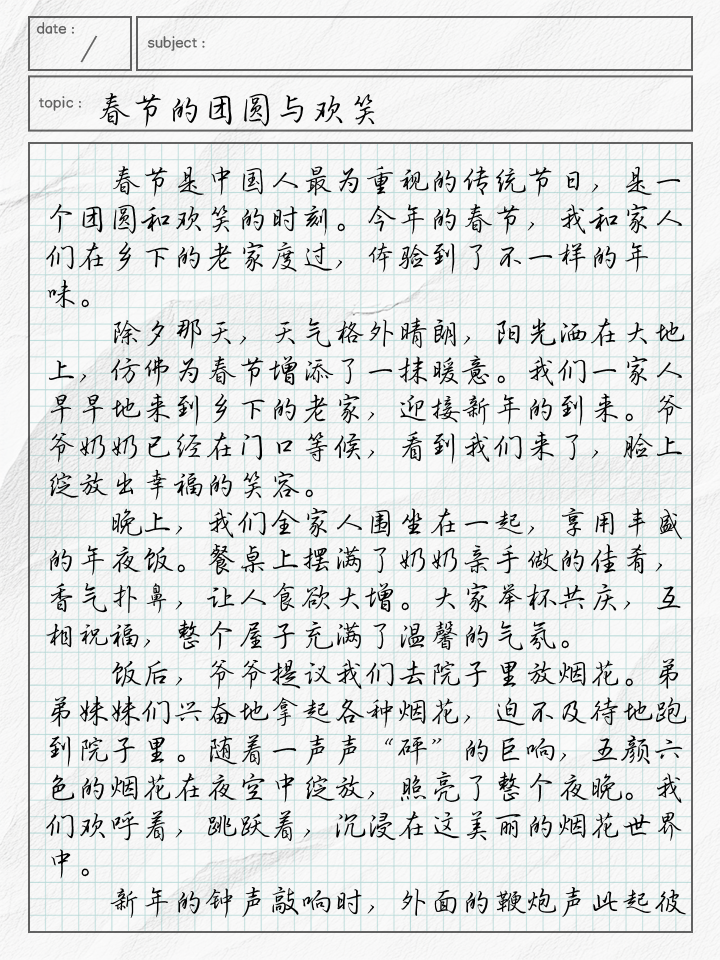 date :
/
subject :
topic : 春节的团圆与欢笑
春节是中国人最为重视的传统节日，是一
个团圆和欢笑的时刻。今年的春节，我和家人
们在乡下的老家度过，体验到了不一样的年
味。
除夕那天，天气格外晴朗，阳光洒在大地
上，仿佛为春节增添了一抹暖意。我们一家人
早早地来到乡下的老家，迎接新年的到来。爷
爷奶奶已经在门口等候，看到我们来了，脸上
绽放出幸福的笑容。
晚上，我们全家人围坐在一起，享用丰盛
的年夜饭。餐桌上摆满了奶奶亲手做的佳肴，
香气扑鼻，让人食欲大增。大家举杯共庆，互
相祝福，整个屋子充满了温馨的气氛。
饭后，爷爷提议我们去院子里放烟花。弟
弟妹妹们兴奋地拿起各种烟花，迫不及待地跑
到院子里。随着一声声“砰”的巨响，五颜六
色的烟花在夜空中绽放，照亮了整个夜晚。我
们欢呼着，跳跃着，沉浸在这美丽的烟花世界
中。
新年的钟声敲响时，外面的鞭炮声此起彼